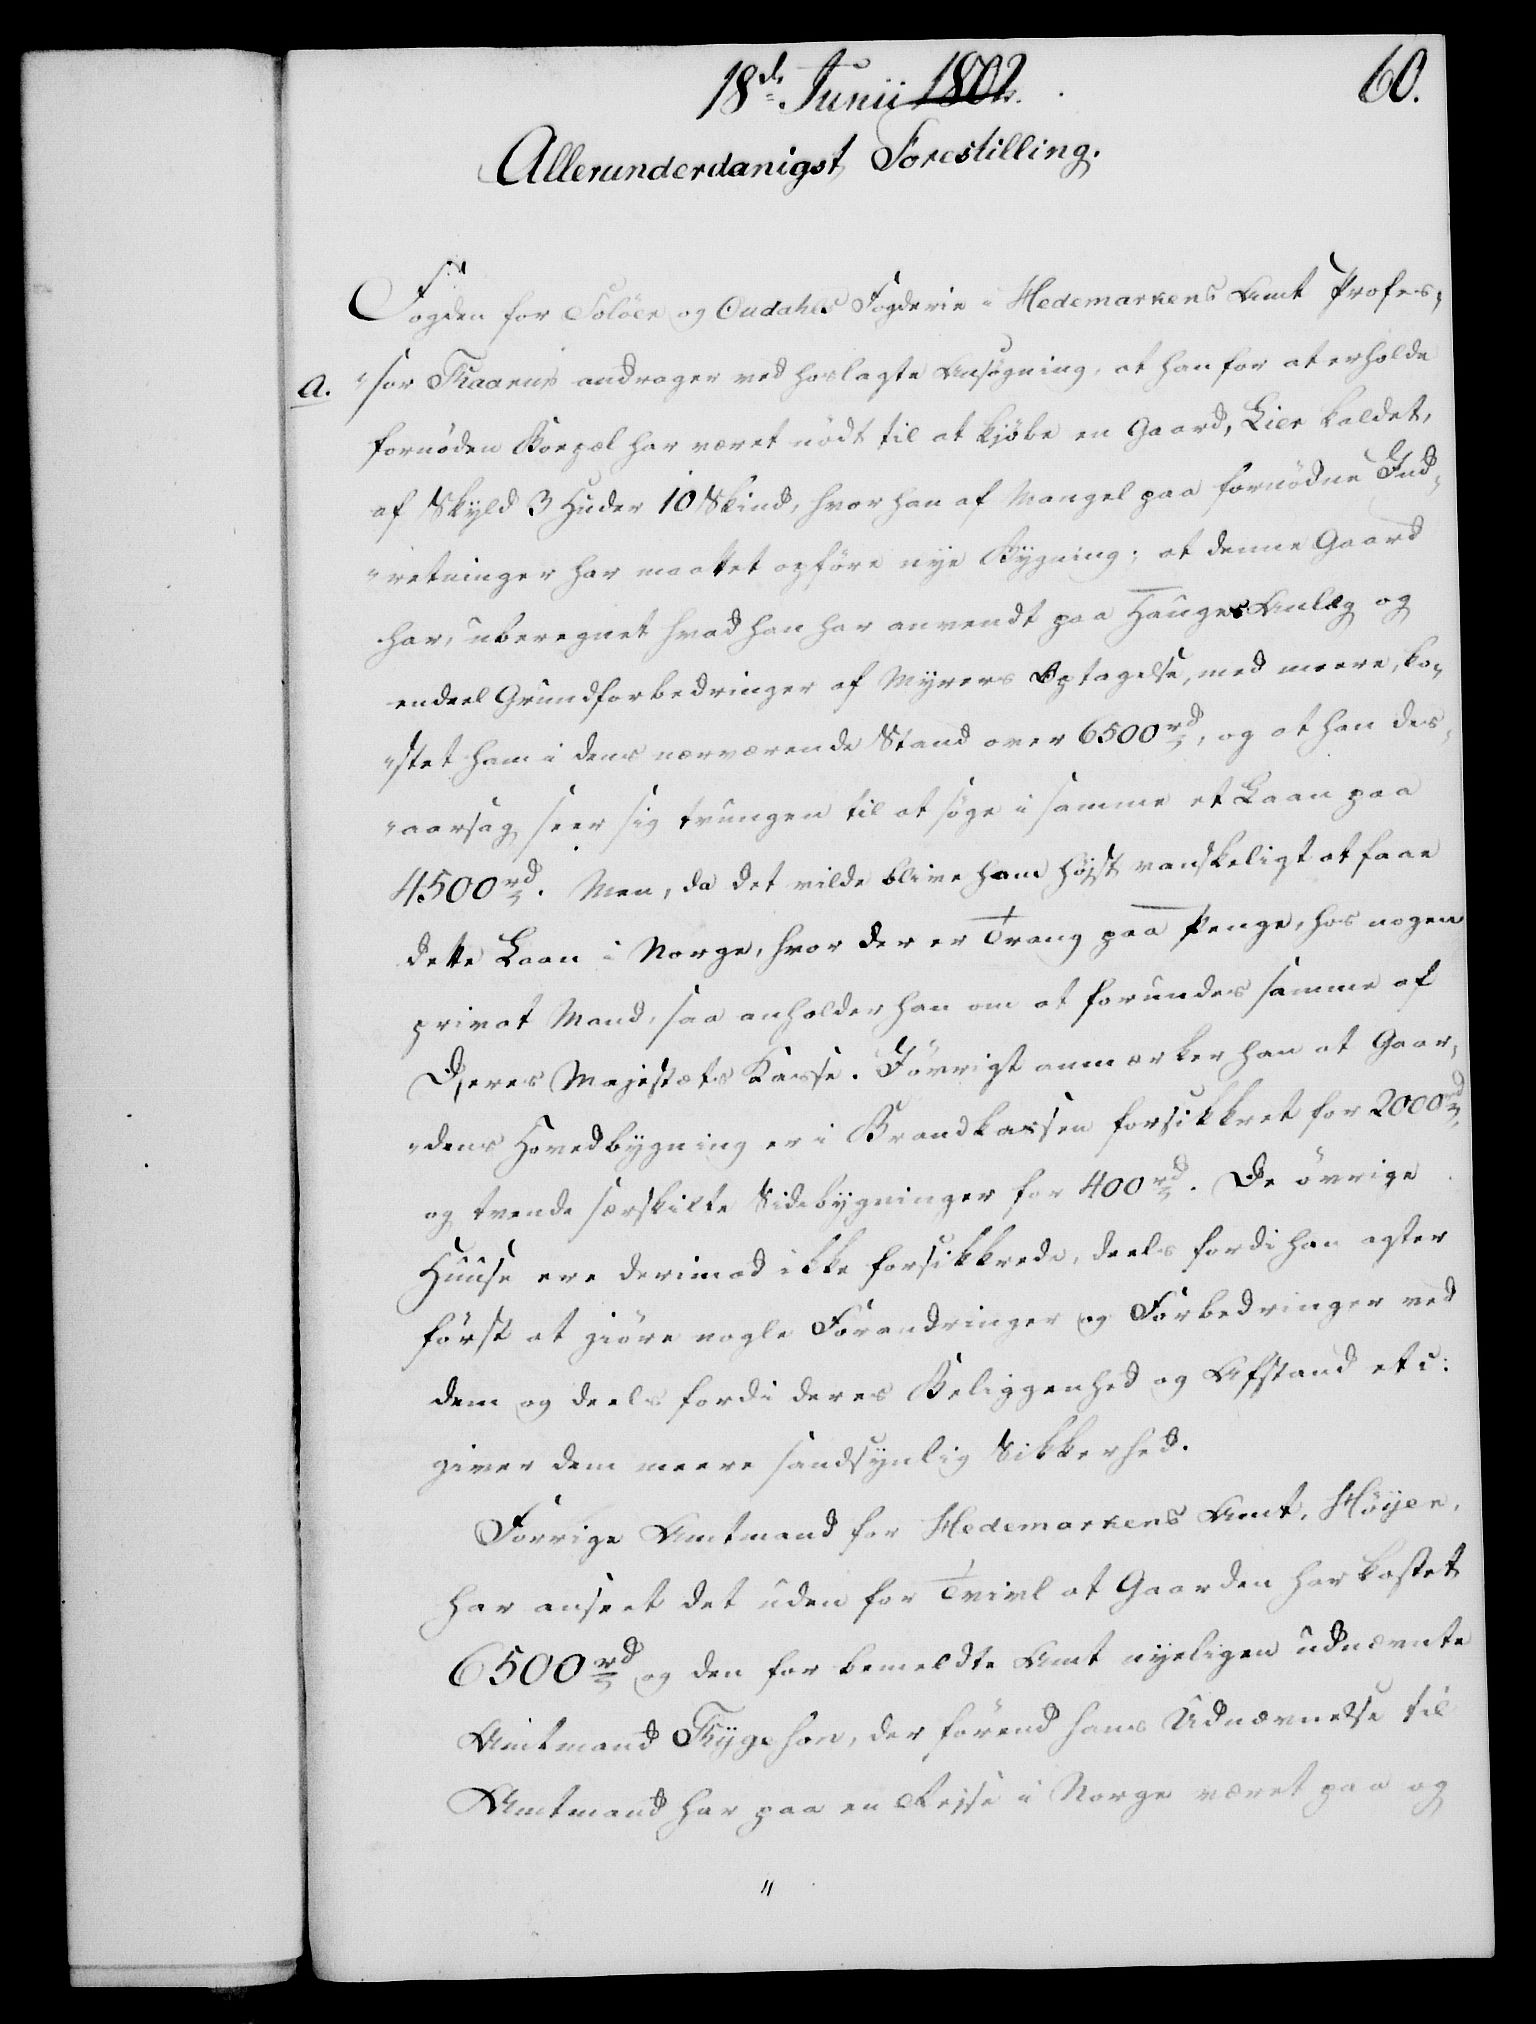 18de Junii 1802.
60.
Allerunderdanigst Forestilling.
Fogden for Soløer og Oudahls Fogderie i Hedemarkens Amt Profes„
a. „sor Thaarup andrager ved hoslagte Ansøgning, at han for at erholde
fornøden Boepæl har været nødt til at kjøbe en Gaard, Lier kaldet,
af Skyld 3 Huder 10 Skind, hvor han af Mangel paa fornødne Ind„
„retninger har maattet opføre nye Bygning; at denne Gaard
har, uberegnet hvad han har anvendt paa Hauges Anlæg og
endeel Grundforbedringer af Myrers Optagelse, med meere, ko„
„stet ham i dens nærværende Stand over 6500 rd, og at han des„
„aarsag seer sig tvungen til at søge i samme et Laan paa
4500 rd. Men, da det vilde blive ham højst vanskeligt at faae
dette Laan i Norge, hvor der er Trang paa Penge, hos nogen
privat Mand, saa anholder han om at forundes samme af
Deres Majestæts Kasse. Iøvrigt anmærker han at Gaar„
„dens Hovedbygning er i Brandkassen forsikkret for 2000 rd,
og tvende særskilte Sidebygninger for 400 rd. De øvrige
Huuse ere derimod ikke forsikkrede, deels fordi han agter
først at giøre nogle Forandringer og Forbedringer ved
dem og deels fordi deres Beliggenhed og Afstand etc:
giver dem meere sandsynlig Sikkerhed.
Forrige Amtmand for Hedemarkens Amt, Høyer,
har anseet det uden for Tvivl at Gaarden har kostet
6500 rd og den for bemeldte Amt nyeligen udnævnte
Amtmand Thygeson, der førend hans Udnævnelse til
Amtmand har paa en Rejse i Norge været paa og
"